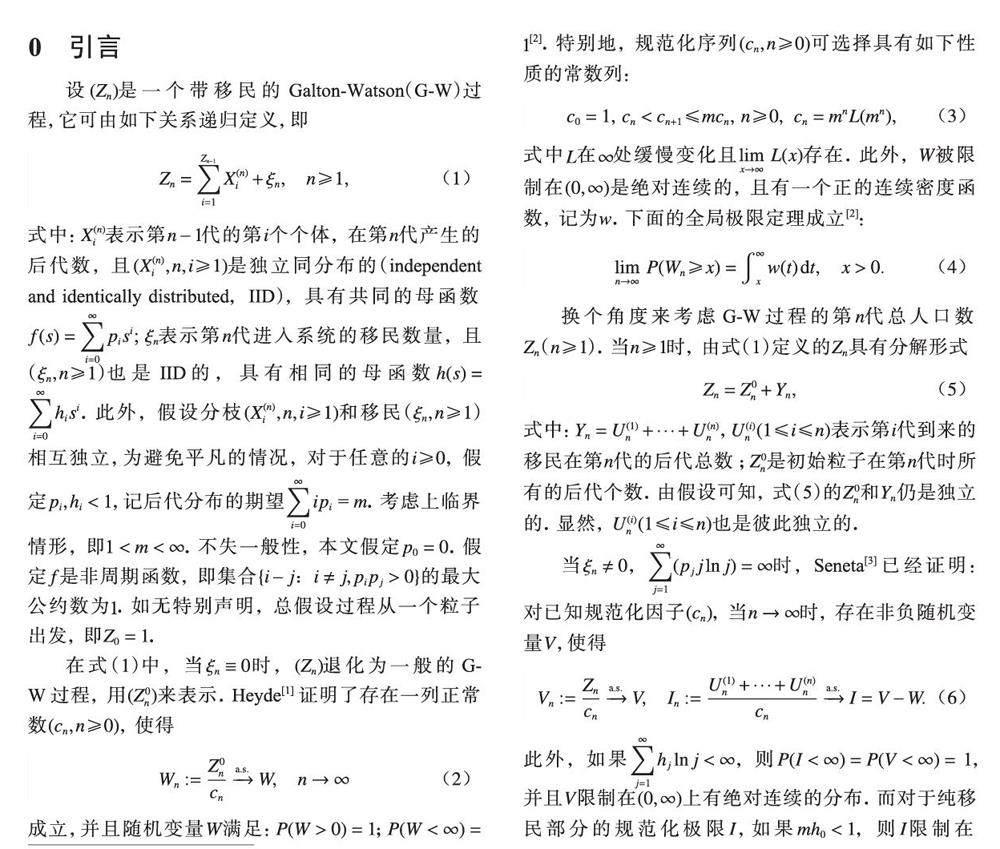 0 引言
设 (Zₙ)是一个带移民的 Galton-Watson(G-W)过
程,它可由如下关系递归定义,即
Zₙ = ∑_{i=1}^{Z_{n−1}} X_i^{(n)} + ξₙ, n⩾1, (1)
式中: X_i^{(n)}表示第n−1代的第i个个体, 在第n代产生的
后代数, 且(X_i^{(n)},n,i⩾1)是独立同分布的(independent
and identically distributed, IID), 具有共同的母函数
f(s) = ∑_{i=0}^{∞} p_i s^i; ξₙ表示第n代进入系统的移民数量, 且
(ξₙ,n⩾1)也是 IID 的, 具有相同的母函数 h(s) =
∑_{i=0}^{∞} h_i s^i. 此外, 假设分枝(X_i^{(n)},n,i⩾1)和移民(ξₙ,n⩾1)
相互独立,为避免平凡的情况, 对于任意的i⩾0, 假
定p_i,h_i < 1, 记后代分布的期望∑_{i=0}^{∞} ip_i = m. 考虑上临界
情形, 即1 < m < ∞. 不失一般性, 本文假定 p₀ = 0. 假
定 f是非周期函数, 即集合{i − j: i ≠ j, p_i p_j > 0}的最大
公约数为1. 如无特别声明, 总假设过程从一个粒子
出发, 即Z₀ = 1.
在式(1)中, 当ξₙ ≡ 0时, (Zₙ)退化为一般的 G-
W 过程, 用(Z_n^0)来表示. Heyde[1] 证明了存在一列正常
数(cₙ,n⩾0), 使得
Wₙ := Z_n^0/cₙ \xrightarrow{a.s.} W, n → ∞ (2)
成立, 并且随机变量W满足: P(W > 0) = 1; P(W < ∞) =
1[2]. 特别地, 规范化序列(cₙ,n⩾0)可选择具有如下性
质的常数列:
c₀ = 1, cₙ < c_{n+1} ⩽ mcₙ, n⩾0, cₙ = mⁿL(mⁿ), (3)
式中L在∞处缓慢变化且lim_{x→∞} L(x)存在. 此外, W被限
制在(0,∞)是绝对连续的, 且有一个正的连续密度函
数, 记为w. 下面的全局极限定理成立[2]:
lim_{n→∞} P(Wₙ⩾x) = ∫_x^∞ w(t)dt, x > 0. (4)
换个角度来考虑 G-W 过程的第n代总人口数
Zₙ(n⩾1). 当n⩾1时, 由式(1)定义的Zₙ具有分解形式
Zₙ = Z_n^0 + Yₙ, (5)
式中: Yₙ = U_n^{(1)} + ··· + U_n^{(n)}, U_n^{(i)}(1⩽i⩽n)表示第i代到来的
移民在第n代的后代总数; Z_n^0是初始粒子在第n代时所
有的后代个数. 由假设可知, 式(5)的Z_n^0和Yₙ仍是独立
的. 显然, U_n^{(i)}(1⩽i⩽n)也是彼此独立的.
当ξₙ ≠ 0, ∑_{j=1}^{∞}(p_j j ln j) = ∞时, Seneta[3] 已经证明:
对已知规范化因子(cₙ), 当n → ∞时, 存在非负随机变
量V, 使得
Vₙ := Zₙ/cₙ \xrightarrow{a.s.} V, Iₙ := (U_n^{(1)} + ··· + U_n^{(n)})/cₙ \xrightarrow{a.s.} I = V − W. (6)
此外, 如果∑_{j=1}^{∞} h_j ln j < ∞, 则P(I < ∞) = P(V < ∞) = 1,
并且V限制在(0,∞)上有绝对连续的分布. 而对于纯移
民部分的规范化极限I, 如果 mh₀ < 1, 则I限制在